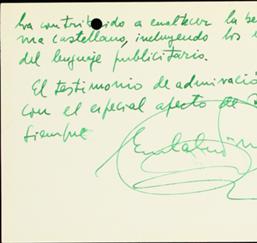 ha contribuido a enaltecer la be
ma castellano, incluyendo los
del lenguaje publicitario.
El testimonio de admiració
con el especial afecto de
siempre